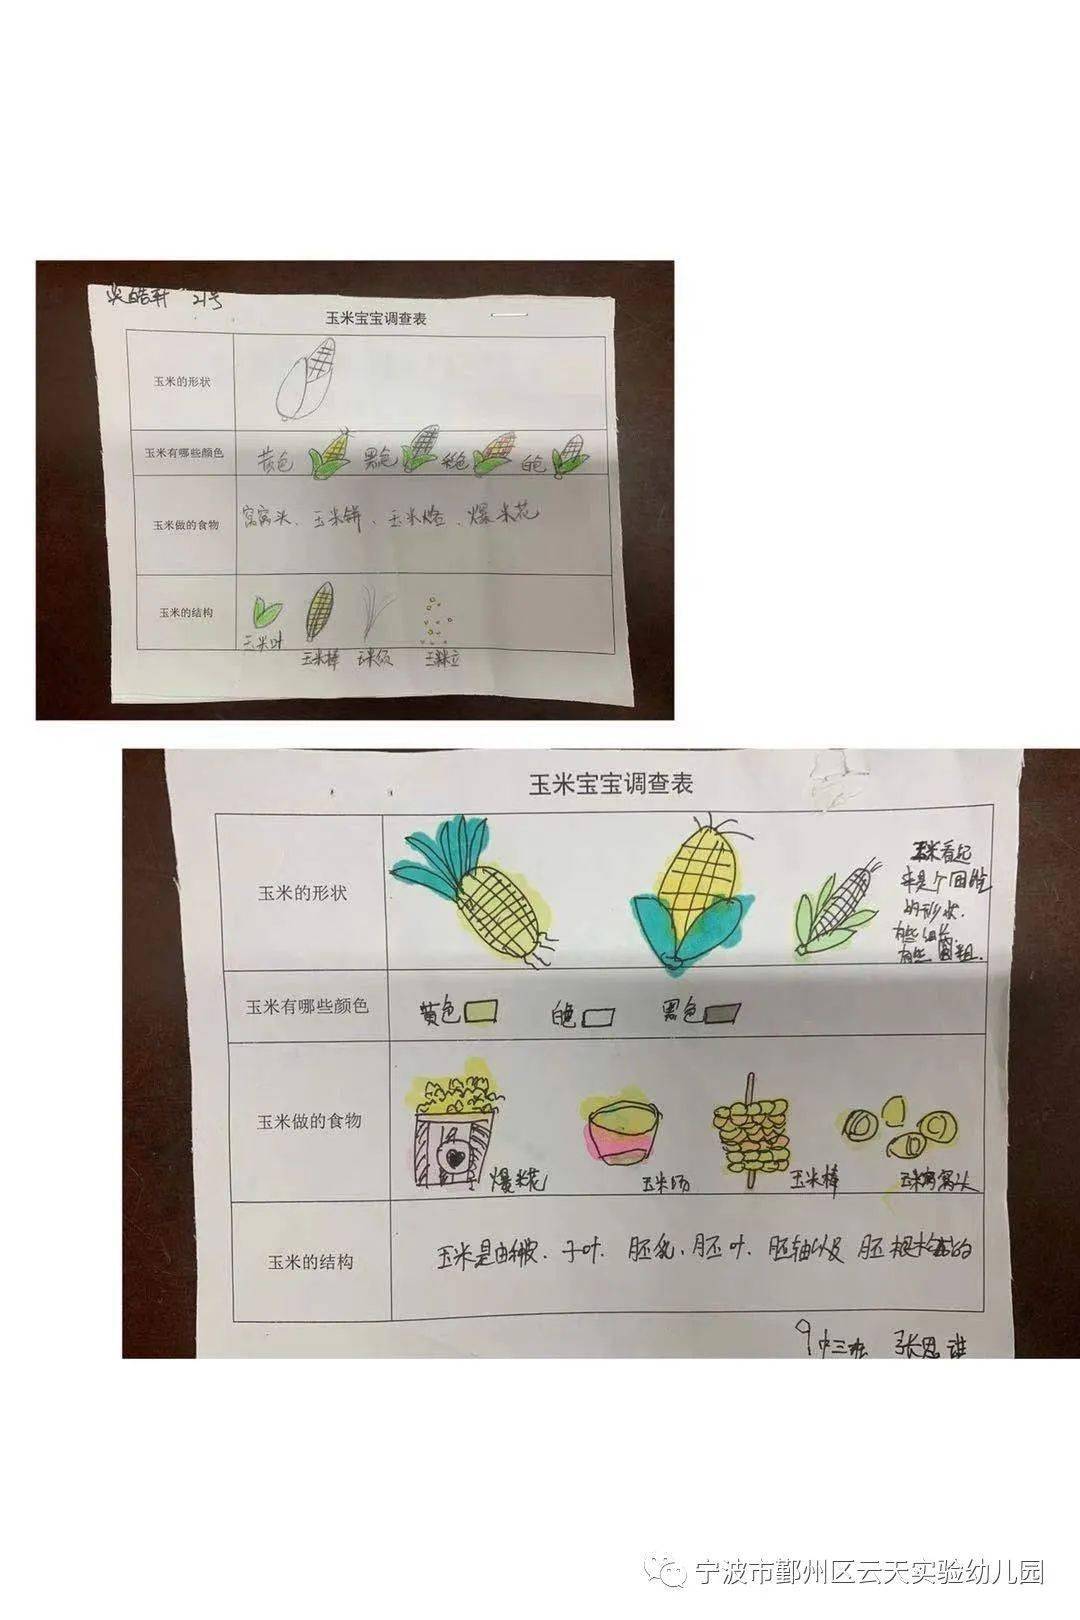 21号
玉米宝宝调查表
玉米的形状
玉米有哪些颜色
黄色 黑色 彩色 白色
玉米做的食物
窝窝头、玉米饼、玉米烙、爆米花
玉米的结构
玉米叶 玉米棒 玉米须 玉米立
玉米宝宝调查表
玉米的形状
玉米看起
来是个圆锥
的形状.
有些细长.
有些圆粗.
玉米有哪些颜色
黄色 白色 黑色
玉米做的食物
爆米花 玉米汤 玉米棒 玉米窝窝头
玉米的结构
玉米是由种皮、子叶、胚乳、胚叶、胚轴以及胚根构成的
9 中三班 张思
宁波市鄞州区云天实验幼儿园